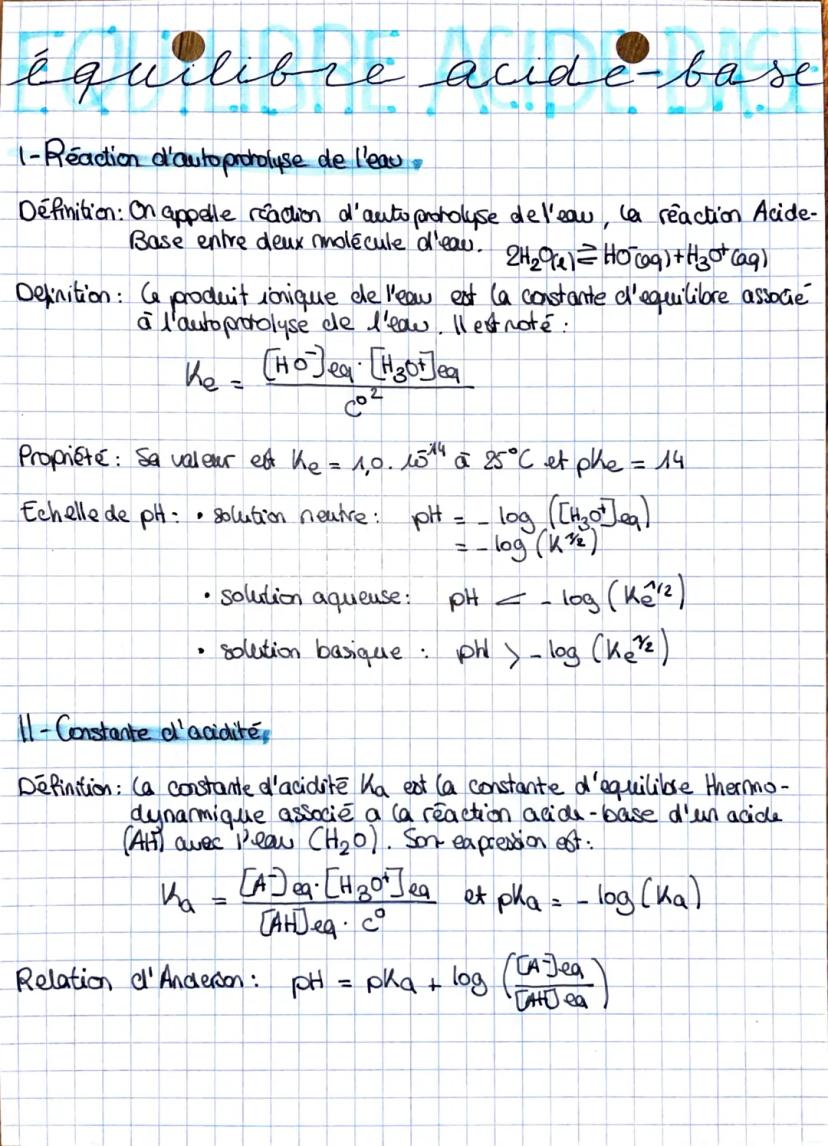 équilibre acide-base
I-Réaction d'autoprotolyse de l'eau
Définition: On appelle réaction d'autoprotolyse de l'eau, la réaction Acide-
Base entre deux molécule d'eau. 2H₂O(l) ⇌ HO⁻(aq) + H₃O⁺(aq)
Definition: Le produit ionique de l'eau est la constante d'equilibre associé
à l'autoprotolyse de l'eau. Il est noté:
Ke = [HO⁻]eq · [H₃O⁺]eq / c°²
Propriété: Sa valeur est Ke = 1,0. 10⁻¹⁴ à 25°C et pKe = 14
Echelle de pH: • solution neutre: pH = - log ([H₃O⁺]eq)
= - log (K^1/2)
• solution aqueuse: pH < - log (Ke^1/2)
• solution basique: pH > - log (Ke^1/2)
II-Constante d'acidité
Définition: la constante d'acidité Ka est la constante d'equilibre thermo-
dynamique associé a la réaction acide-base d'un acide
(AH) avec l'eau (H₂O). Son expression est:
Ka = [A⁻]eq · [H₃O⁺]eq / [AH]eq · c° et pKa = - log (Ka)
Relation d'Anderson: pH = pKa + log ([A⁻]eq / [AH]eq)